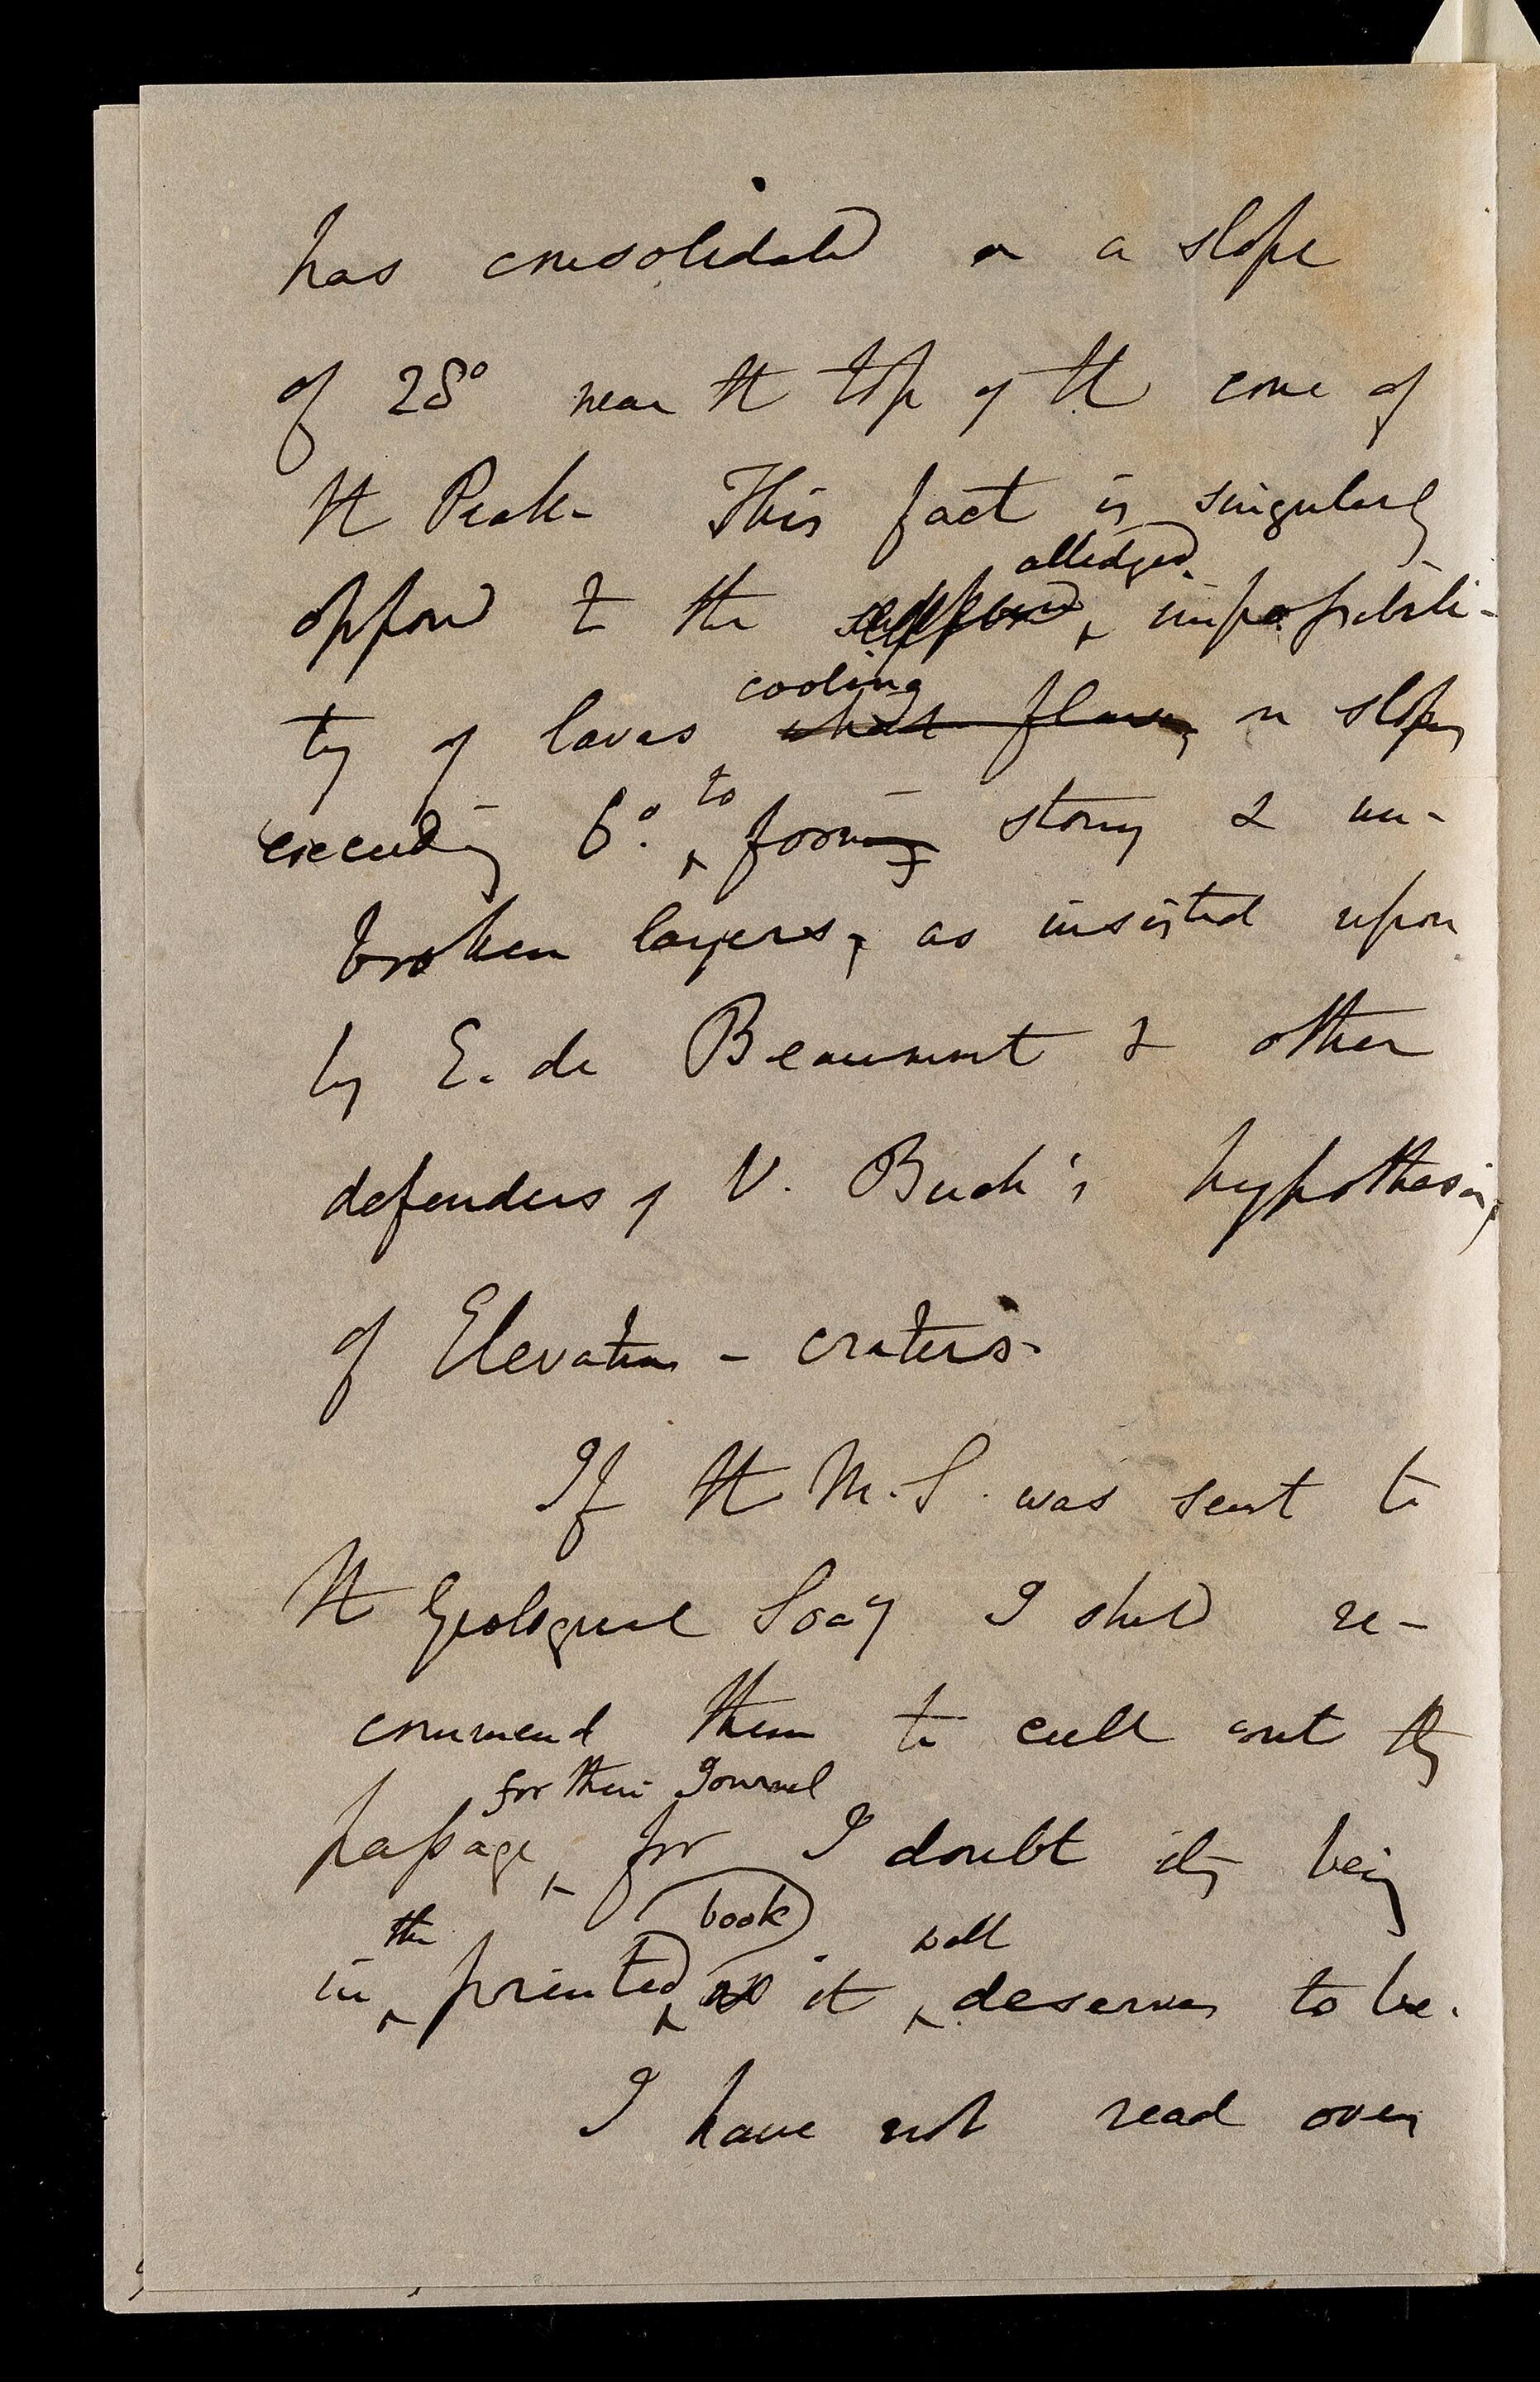 has consolidated on a slope
of 28° near the top of the cone of
the Peak- This fact is singularly
alledged
opposed to the supposed impossibili-
cooling
ty of lavas which flow on slopes
to
exceeding 6°. forming stony & un-
broken layers, as insisted upon
by E. de Beaumont & other
defenders of V. Buch's hypothesis,
of Elevation - craters-
If the M.S. was sent to
the Geological Socy I shd re-
commend them to cull out this
for their Journal
passage, for I doubt its being
the book well
in printed as it deserves to be.
I have not read over